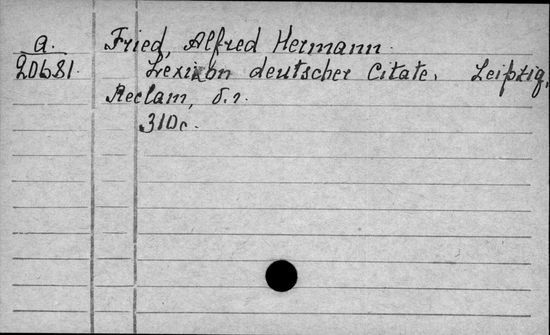 a. Fried, Alfred Hermann.
20681. Lexikon deutscher Citate. Leipzig,
Reclam, s.r.
310c.